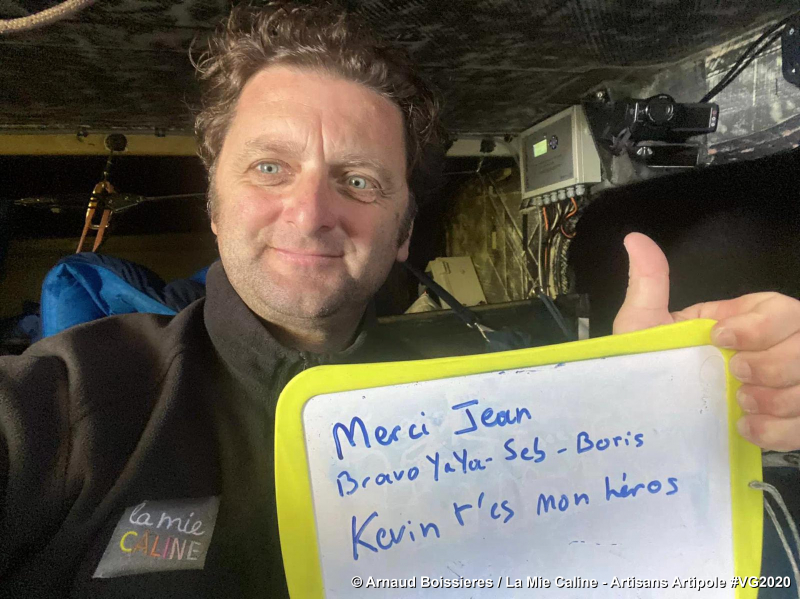 Merci Jean
Bravo YaYa - Seb - Boris
Kevin t'es mon héros
la mie
CALINE
© Arnaud Boissieres / La Mie Caline - Artisans Artipole #VG2020